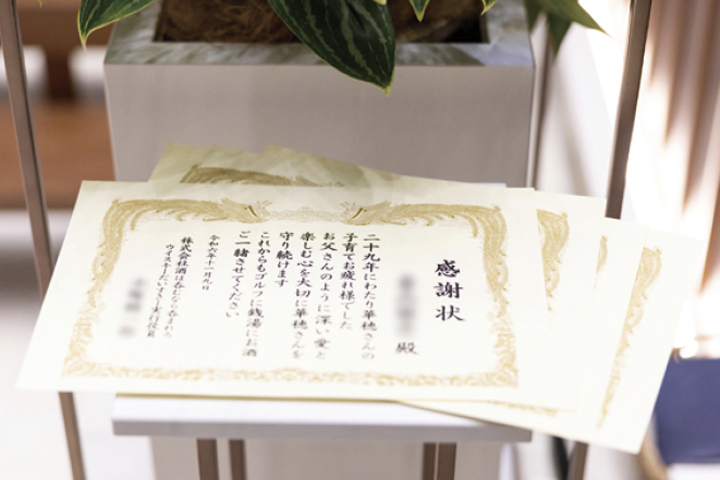 感謝状
殿
二十九年にわたり華穂さんの
子育てお疲れ様でした
お父さんのように深い愛と
楽しむ心を大切に華穂さんを
守り続けます
これからもゴルフに銭湯にお酒
ご一緒させてください
令和六年十一月九日
株式会社酒は呑むなら呑まれろ
ウイスキーだいすき実行役員